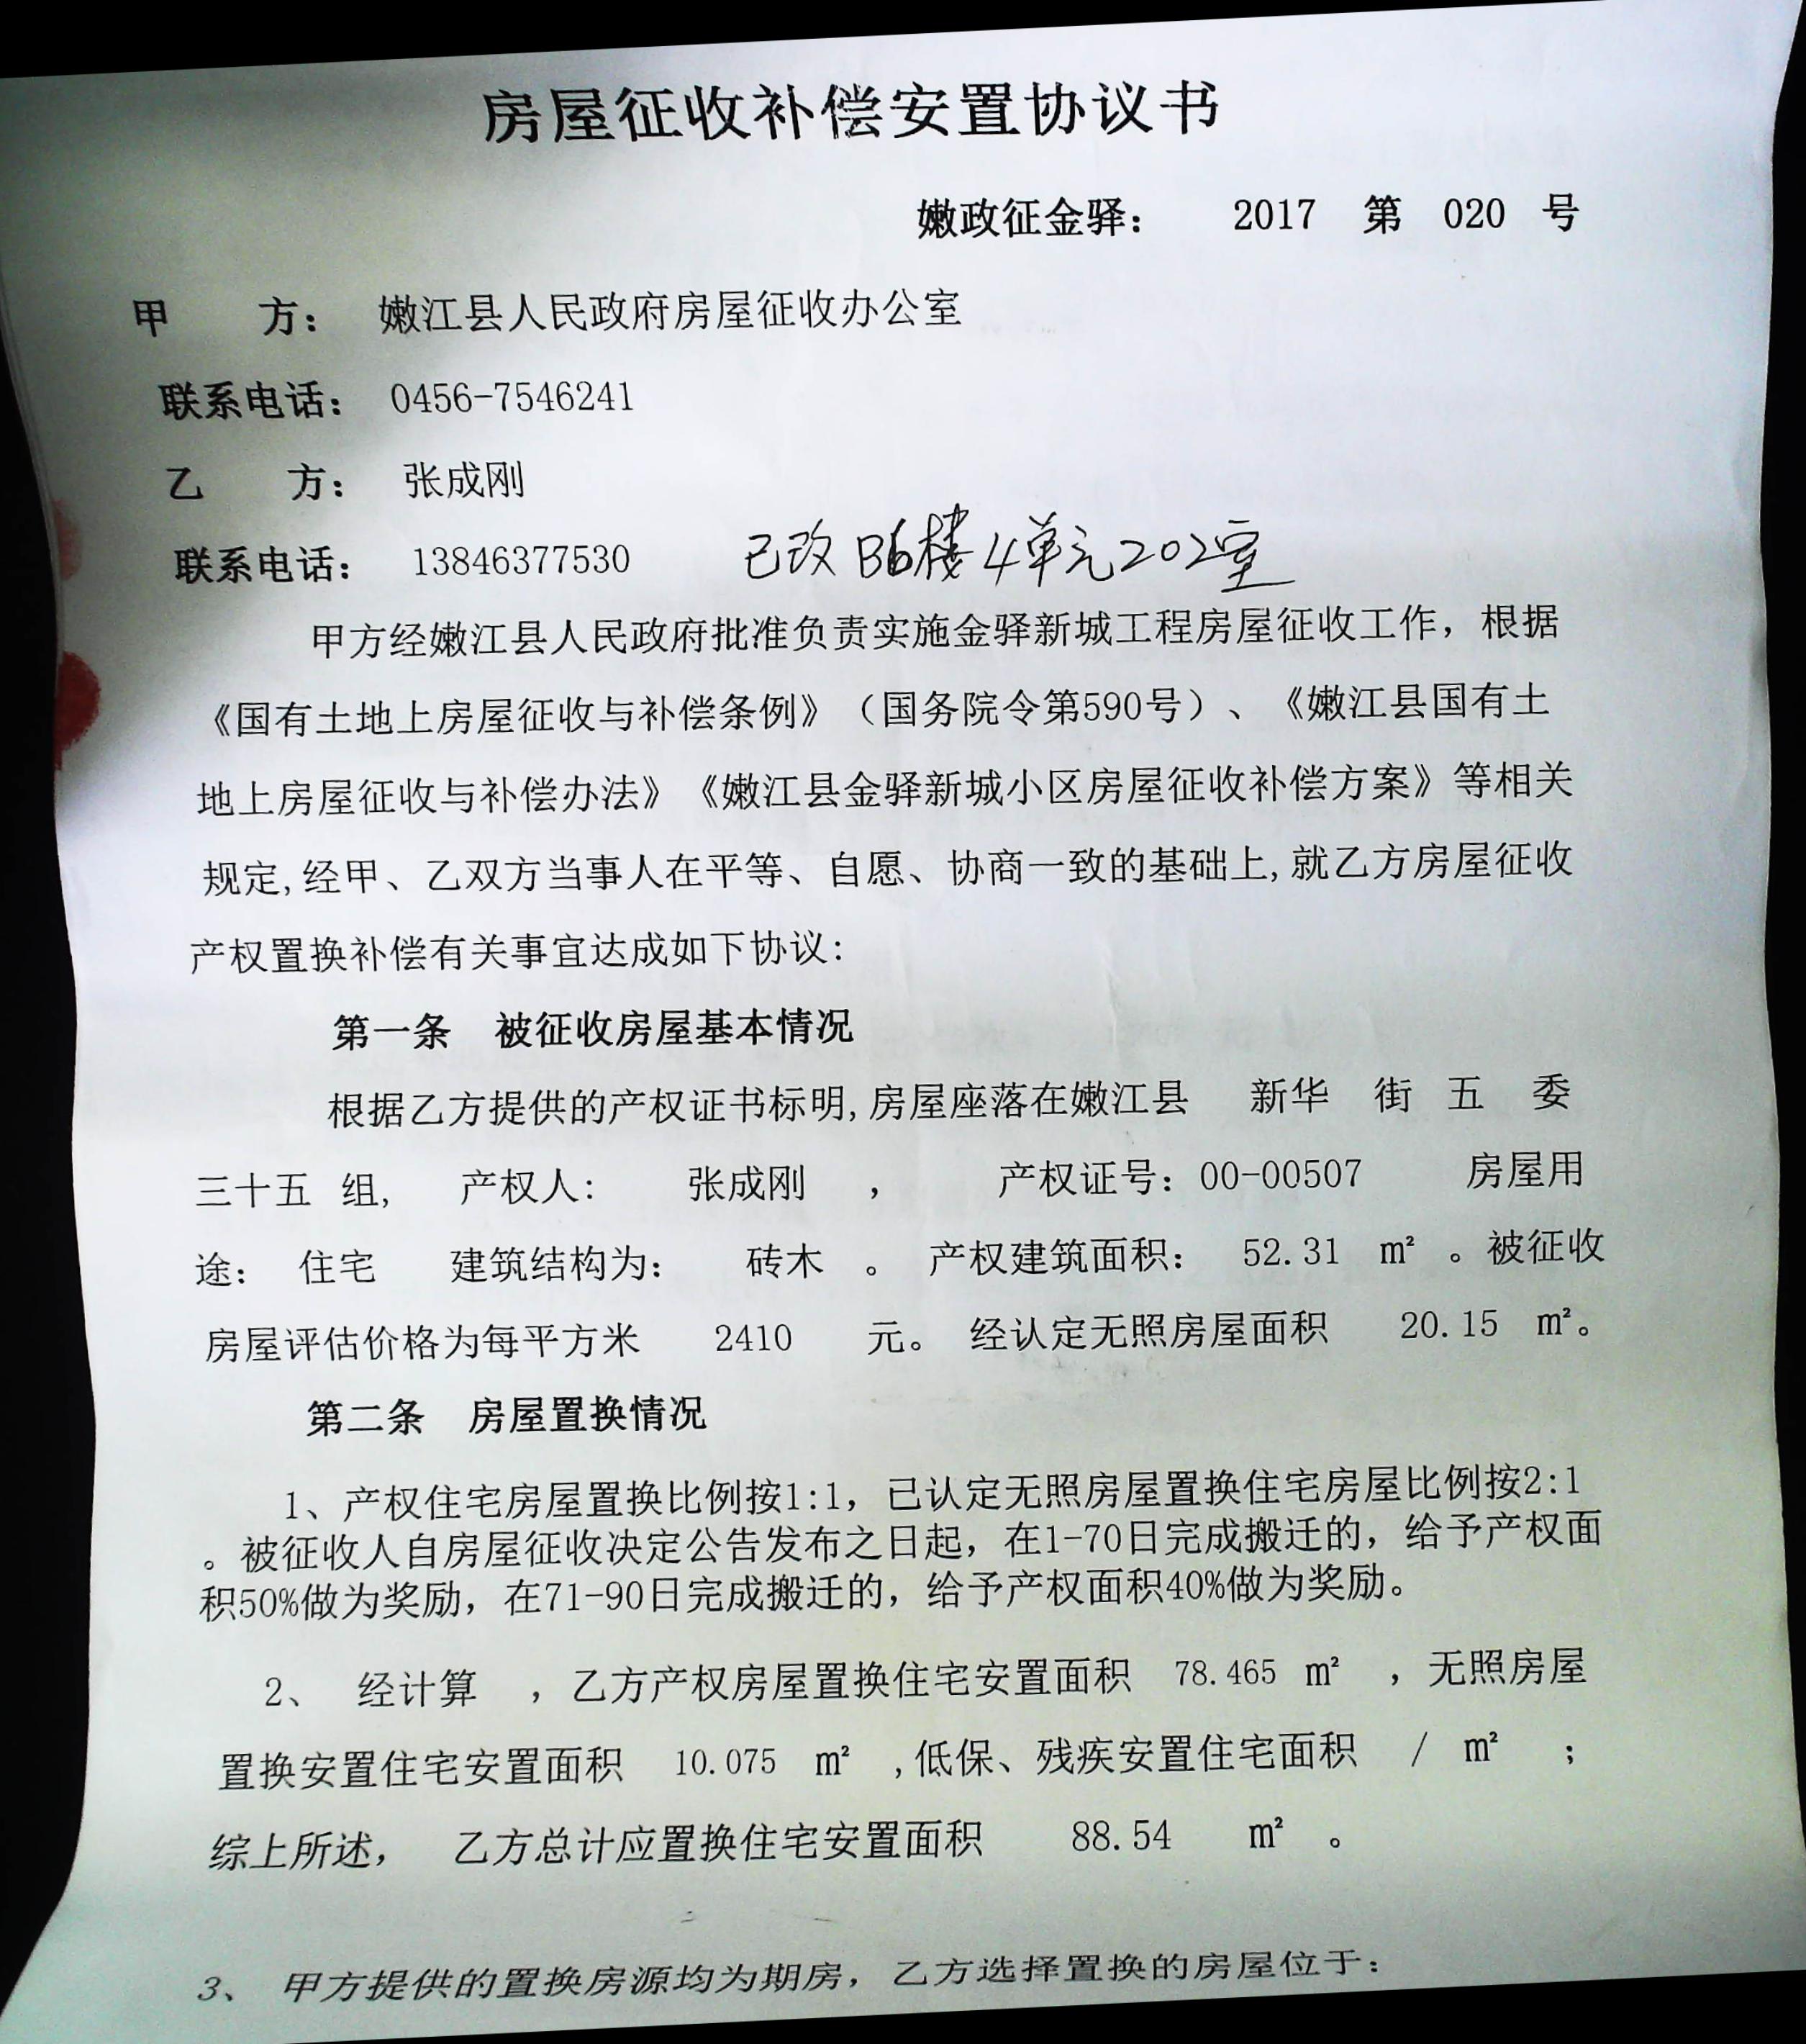 房屋征收补偿安置协议书
嫩政征金驿： 2017 第 020 号
甲 方： 嫩江县人民政府房屋征收办公室
联系电话： 0456-7546241
乙 方： 张成刚
联系电话： 13846377530 已改 B6楼4单元202室
甲方经嫩江县人民政府批准负责实施金驿新城工程房屋征收工作，根据
《国有土地上房屋征收与补偿条例》（国务院令第590号）、《嫩江县国有土
地上房屋征收与补偿办法》《嫩江县金驿新城小区房屋征收补偿方案》等相关
规定,经甲、乙双方当事人在平等、自愿、协商一致的基础上,就乙方房屋征收
产权置换补偿有关事宜达成如下协议：
第一条 被征收房屋基本情况
根据乙方提供的产权证书标明,房屋座落在嫩江县 新华 街 五 委
三十五 组, 产权人： 张成刚 ， 产权证号：00-00507 房屋用
途： 住宅 建筑结构为： 砖木 。 产权建筑面积： 52.31 m² 。被征收
房屋评估价格为每平方米 2410 元。 经认定无照房屋面积 20.15 m²。
第二条 房屋置换情况
1、产权住宅房屋置换比例按1:1，已认定无照房屋置换住宅房屋比例按2:1
。被征收人自房屋征收决定公告发布之日起，在1-70日完成搬迁的，给予产权面
积50%做为奖励，在71-90日完成搬迁的，给予产权面积40%做为奖励。
2、 经计算 ，乙方产权房屋置换住宅安置面积 78.465 m² ，无照房屋
置换安置住宅安置面积 10.075 m² ,低保、残疾安置住宅面积 / m² ；
综上所述， 乙方总计应置换住宅安置面积 88.54 m² 。
3、 甲方提供的置换房源均为期房，乙方选择置换的房屋位于：